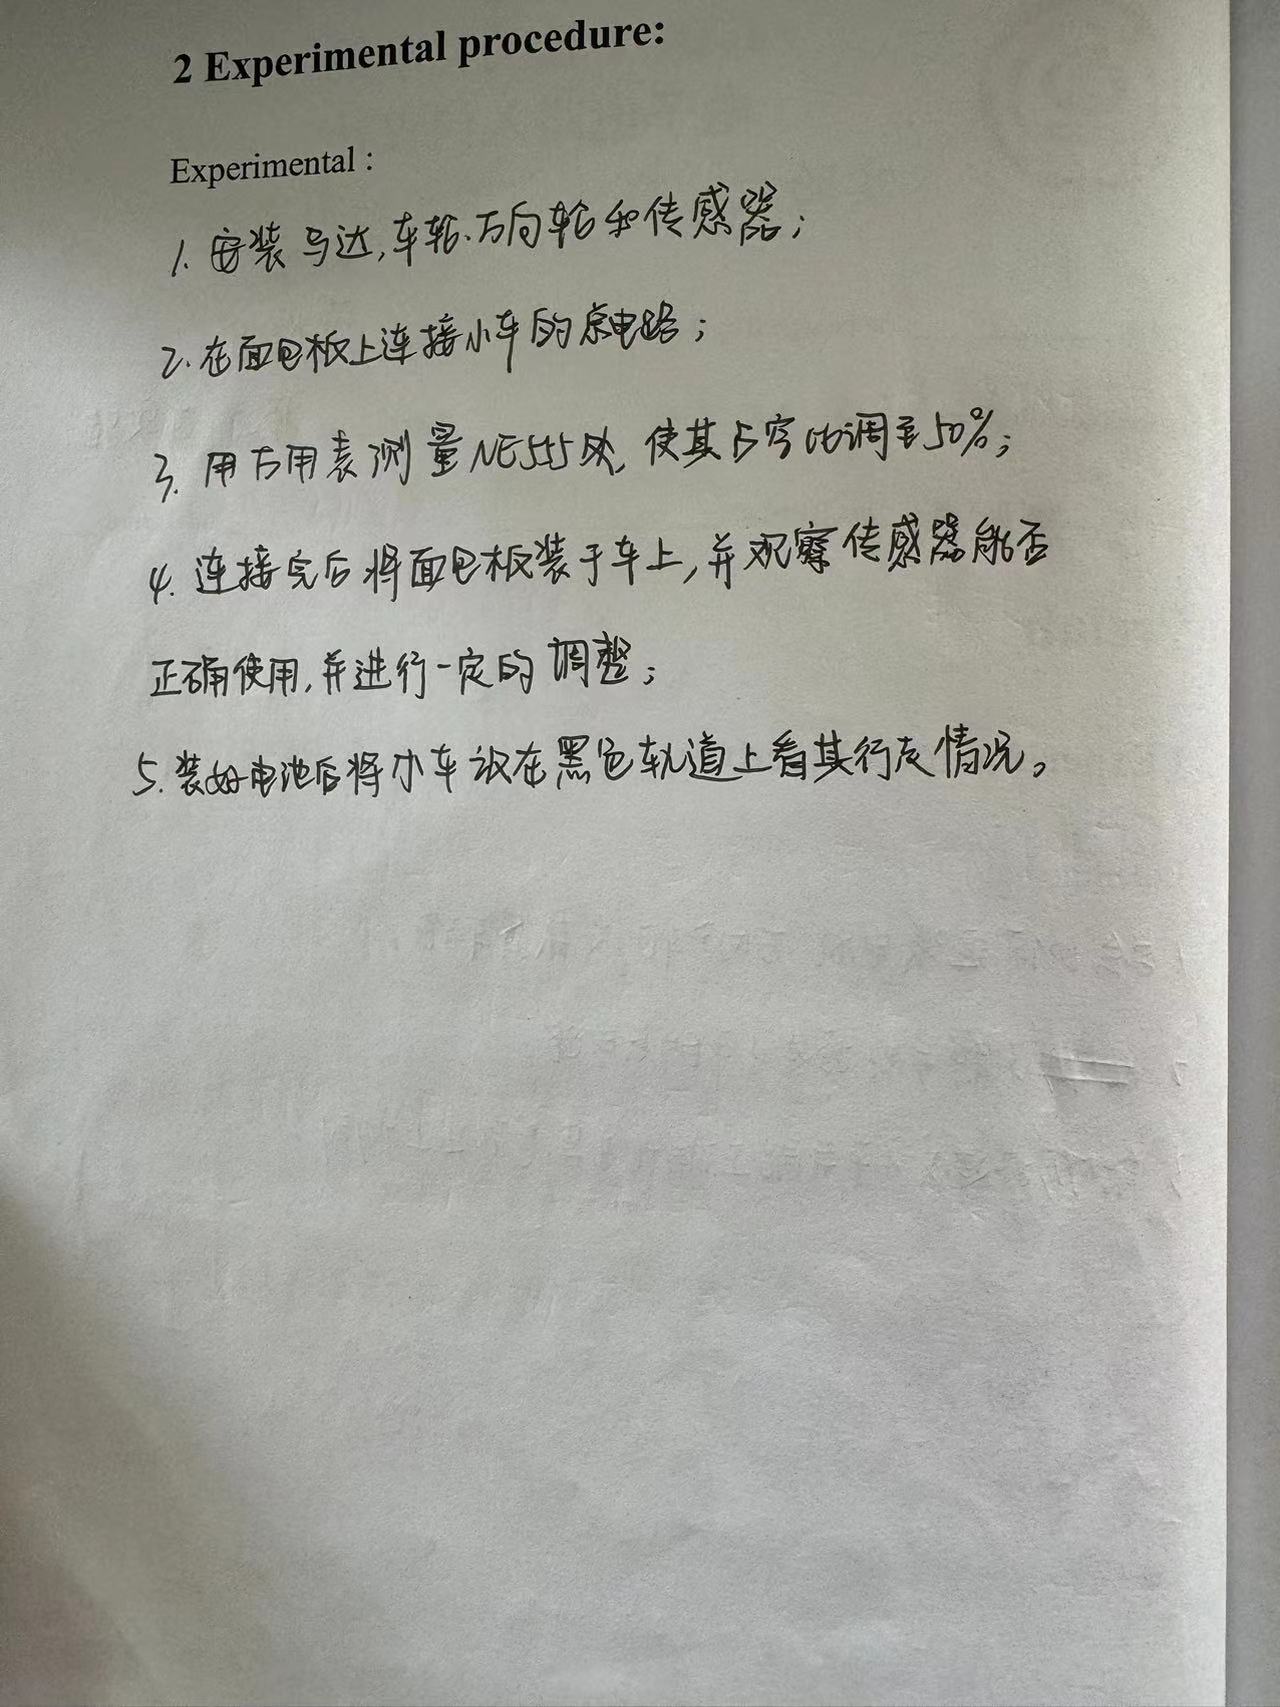 2 Experimental procedure:
Experimental :
1. 安装马达,车轮、万向轮和传感器;
2. 在面包板上连接小车的总电路;
3. 用万用表测量NE555处, 使其占空比调至50%;
4. 连接完后将面包板装于车上,并观察传感器能否
正确使用,并进行一定的调整;
5. 装好电池后将小车放在黑色轨道上看其行走情况。